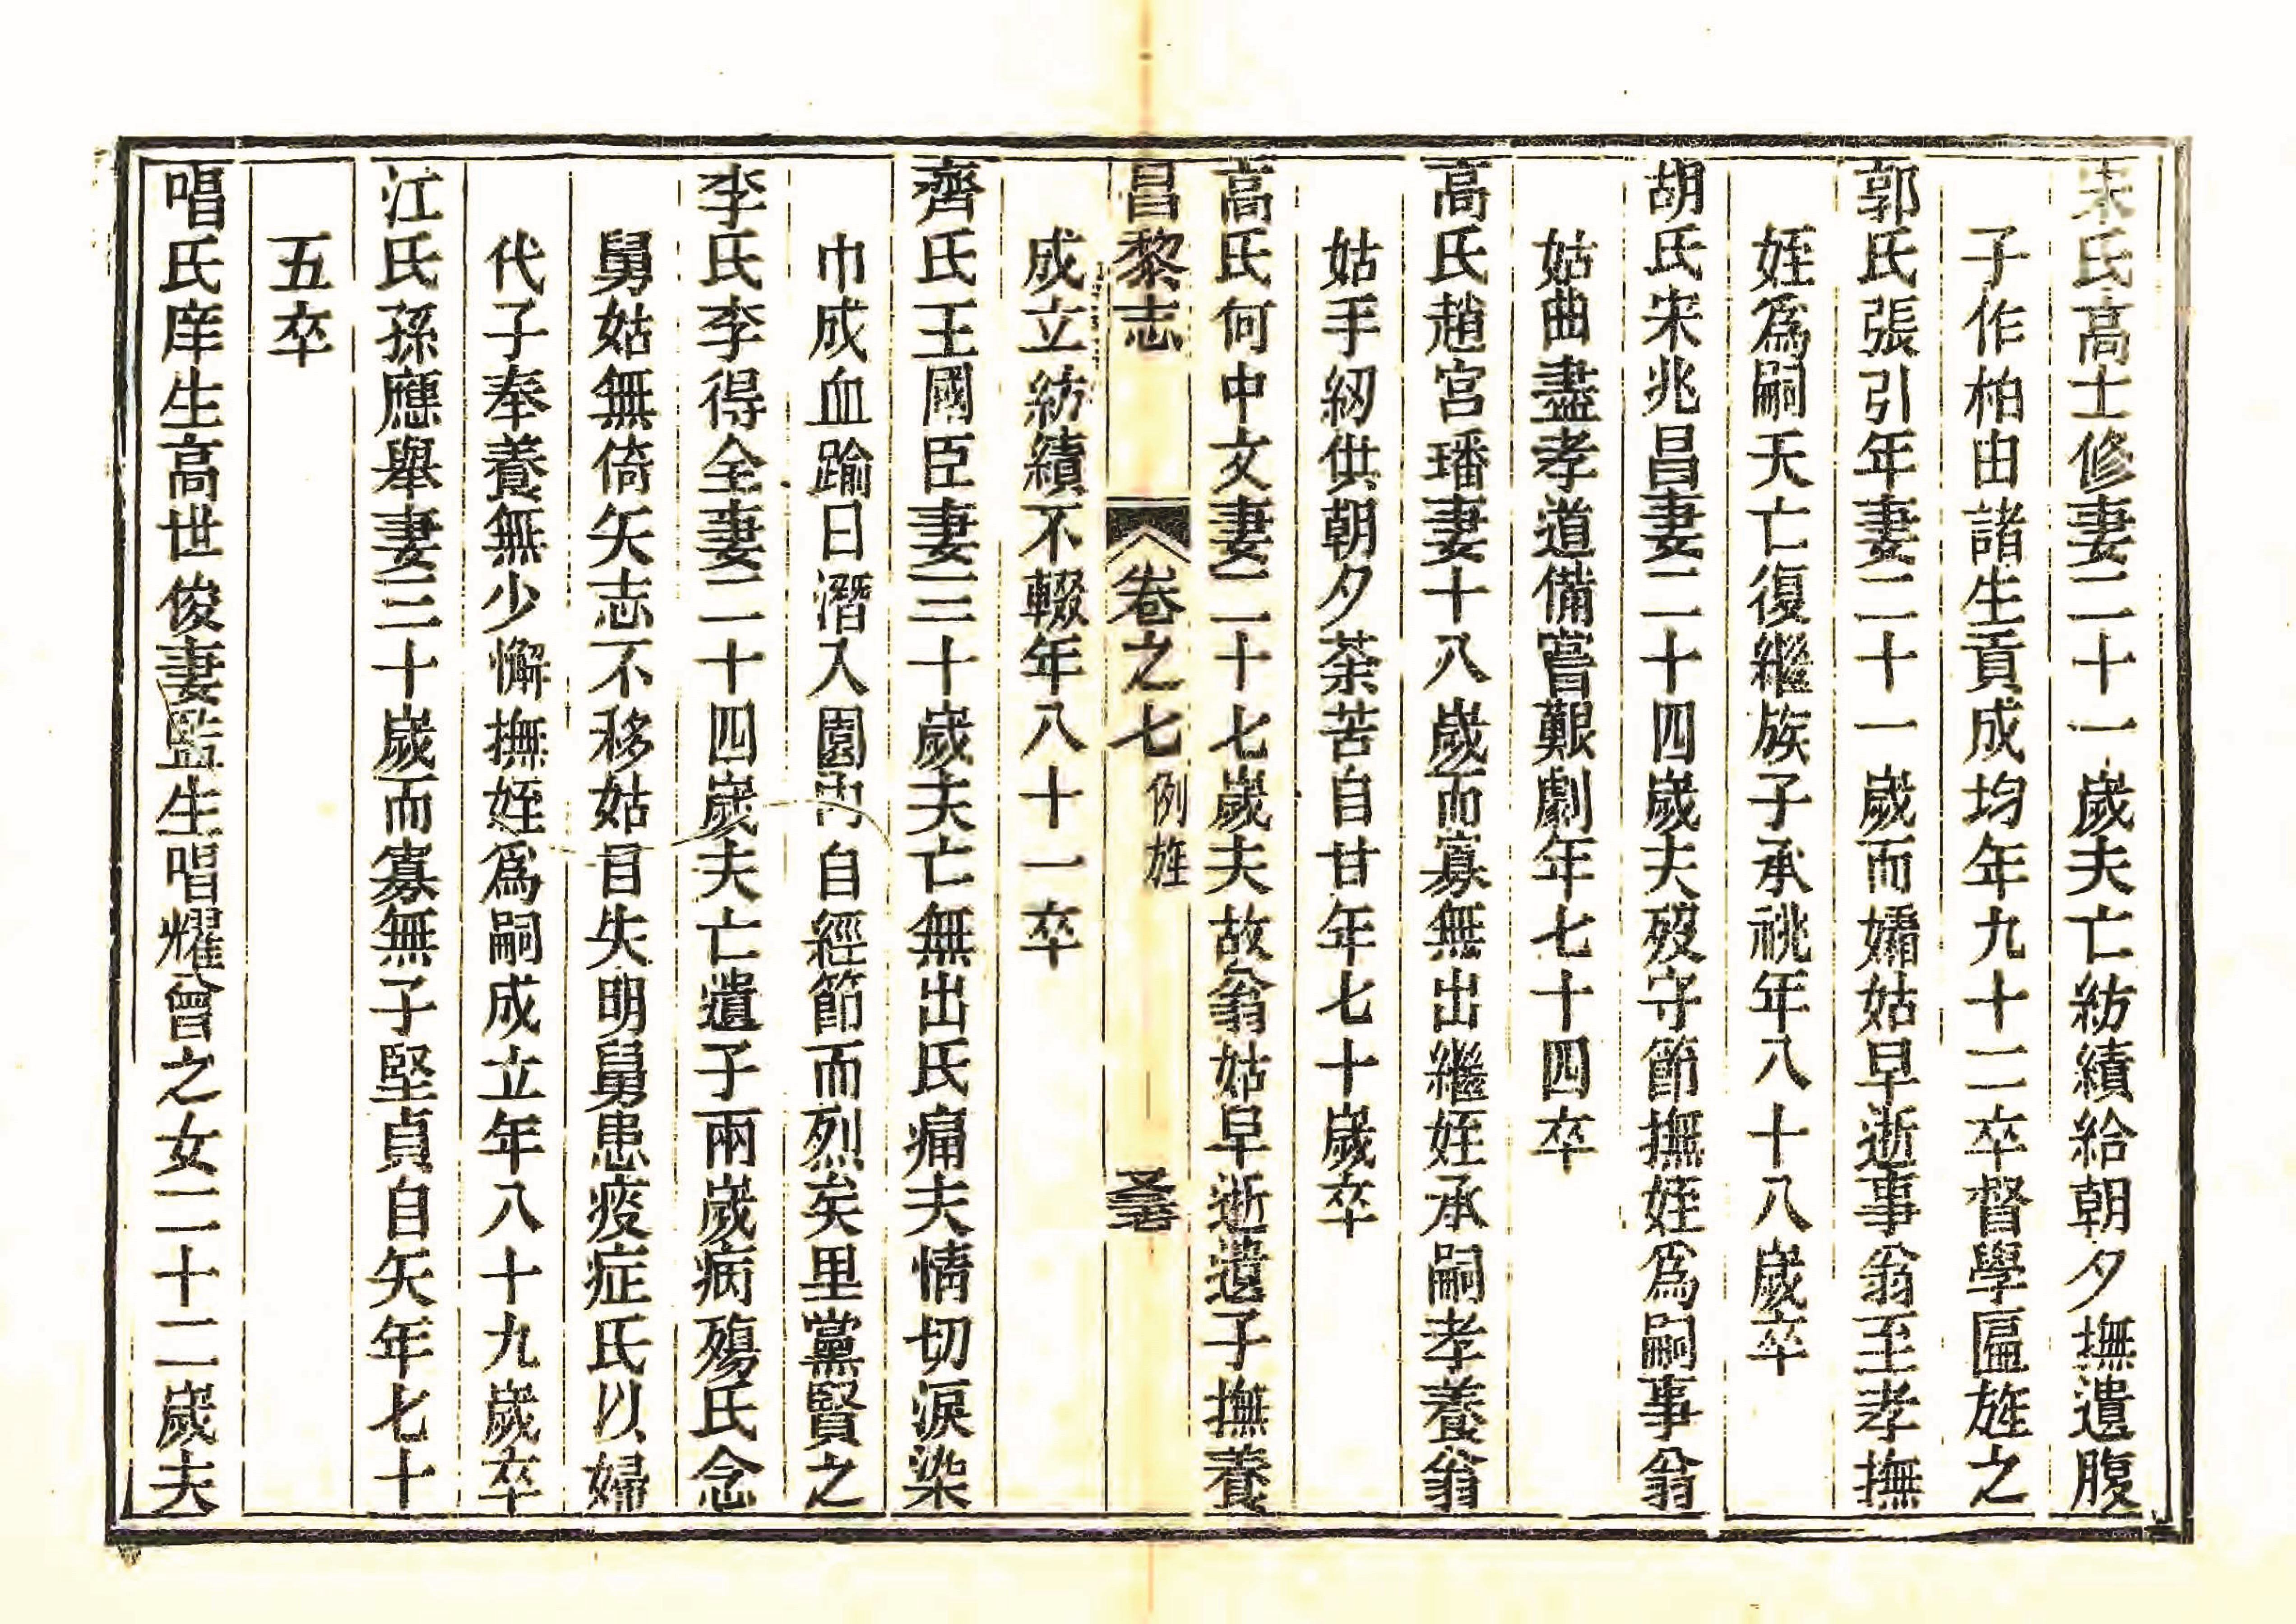 宋氏高士修妻二十一歲夫亡紡績給朝夕撫遺腹
子作柏由諸生貢成均年九十二卒督學匾旌之
郭氏張引年妻二十一歲而孀姑早逝事翁至孝撫
姪爲嗣夭亡復繼族子承祧年八十八歲卒
胡氏宋兆昌妻二十四歲夫歿守節撫姪爲嗣事翁
姑曲盡孝道備嘗艱劇年七十四卒
高氏趙宮璠妻十八歲而寡無出繼姪承嗣孝養翁
姑手紉供朝夕荼苦自甘年七十歲卒
高氏何中文妻二十七歲夫故翁姑早逝遺子撫養
昌黎志 卷之七 例旌
成立紡績不輟年八十一卒
齊氏王國臣妻三十歲夫亡無出氏痛夫情切淚染
巾成血踰日潛入園內自經節而烈矣里黨賢之
李氏李得全妻二十四歲夫亡遺子兩歲病殤氏念
舅姑無倚矢志不移姑目失明舅患痰症氏以婦
代子奉養無少懈撫姪爲嗣成立年八十九歲卒
江氏孫應舉妻三十歲而寡無子堅貞自矢年七十
五卒
唱氏庠生高世俊妻監生唱耀曾之女二十二歲夫